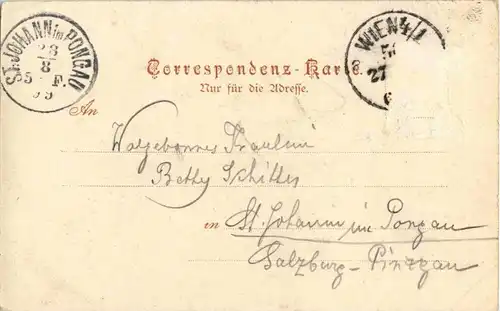 ST. JOHANN im PONGAU
28
8
5 F.
99
WIEN 4/1
27
8
6
Correspondenz-Karte.
Nur für die Adresse.
An
Wolgeborenes Fräulein
Betty Schittes
in St. Johann im Pongau
Salzburg - Pinzgau